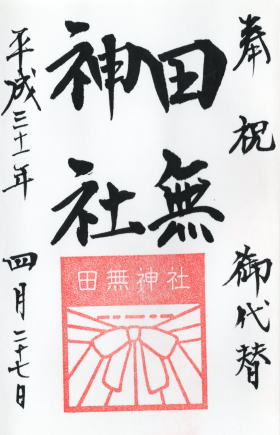 奉祝 御代替
田無
神社
田無神社
平成三十一年 四月二十七日